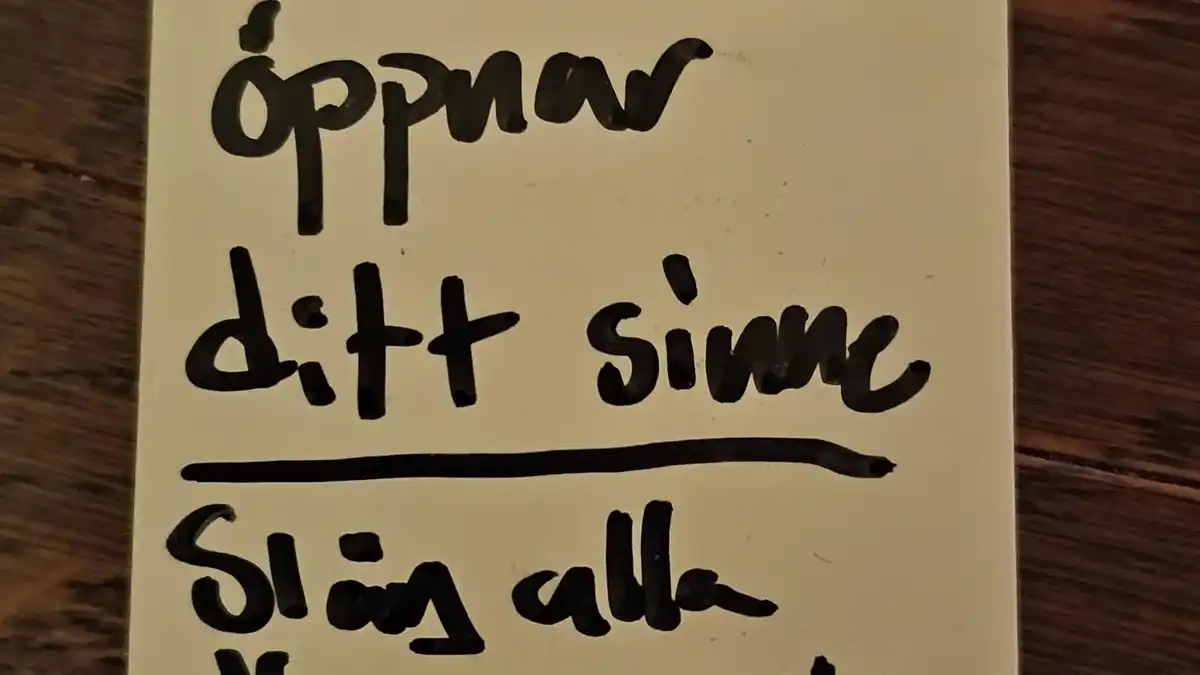 öppnar
ditt sinne
Släng alla